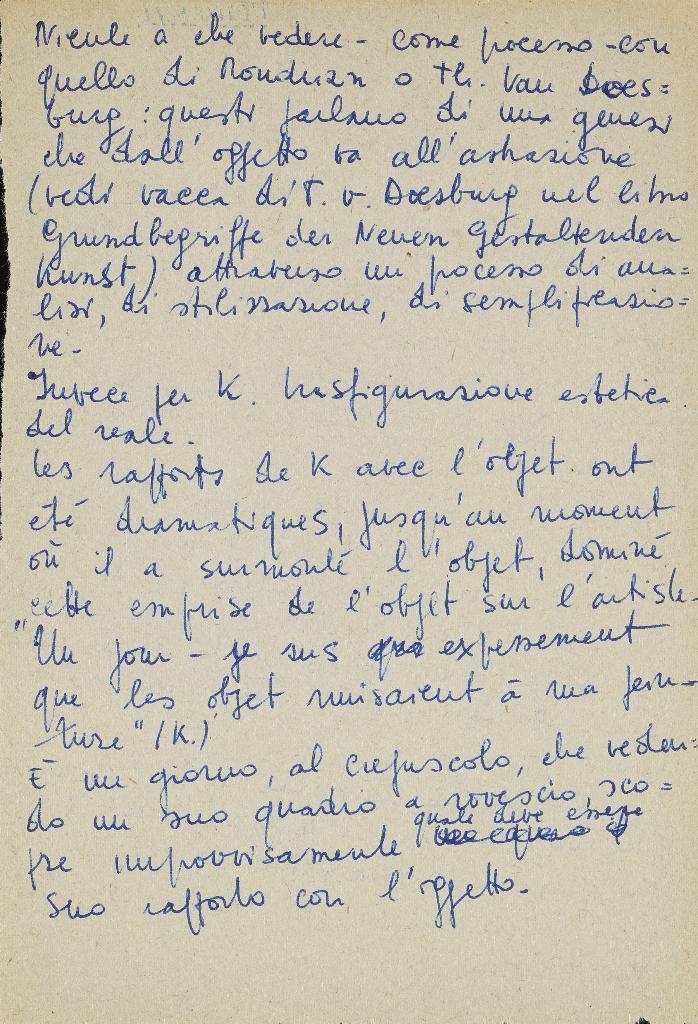 Niente a che vedere - come pocesso - con
quello di Mondrian o Th. Van Does=
burg: questi parlano di una genesi
che dall'oggetto va all'astrazione
(vedi vacca di T. v. Doesburg nel libro
Grundbegriffe der Neuen Gestaltenden
Kunst) attraverso un pocesso di ana=
lisi, di stilizzazione, di semplificazio=
ne -
Invece per K. trasfigurazione estetica
del reale.
Les rapports de K avec l'objet ont
été dramatiques, jusqu'au moment
où il a surmonté l'objet, dominé
cette emprise de l'objet sur l'artiste -
"Un jour - je sus expessement
que les objet nuisaient à ma pein-
ture" (K.)
È un giorno, al crepuscolo, che veden=
do un suo quadro a rovescio, sco=
pre improvvisamente quale deve essere
suo rapporto con l'oggetto -